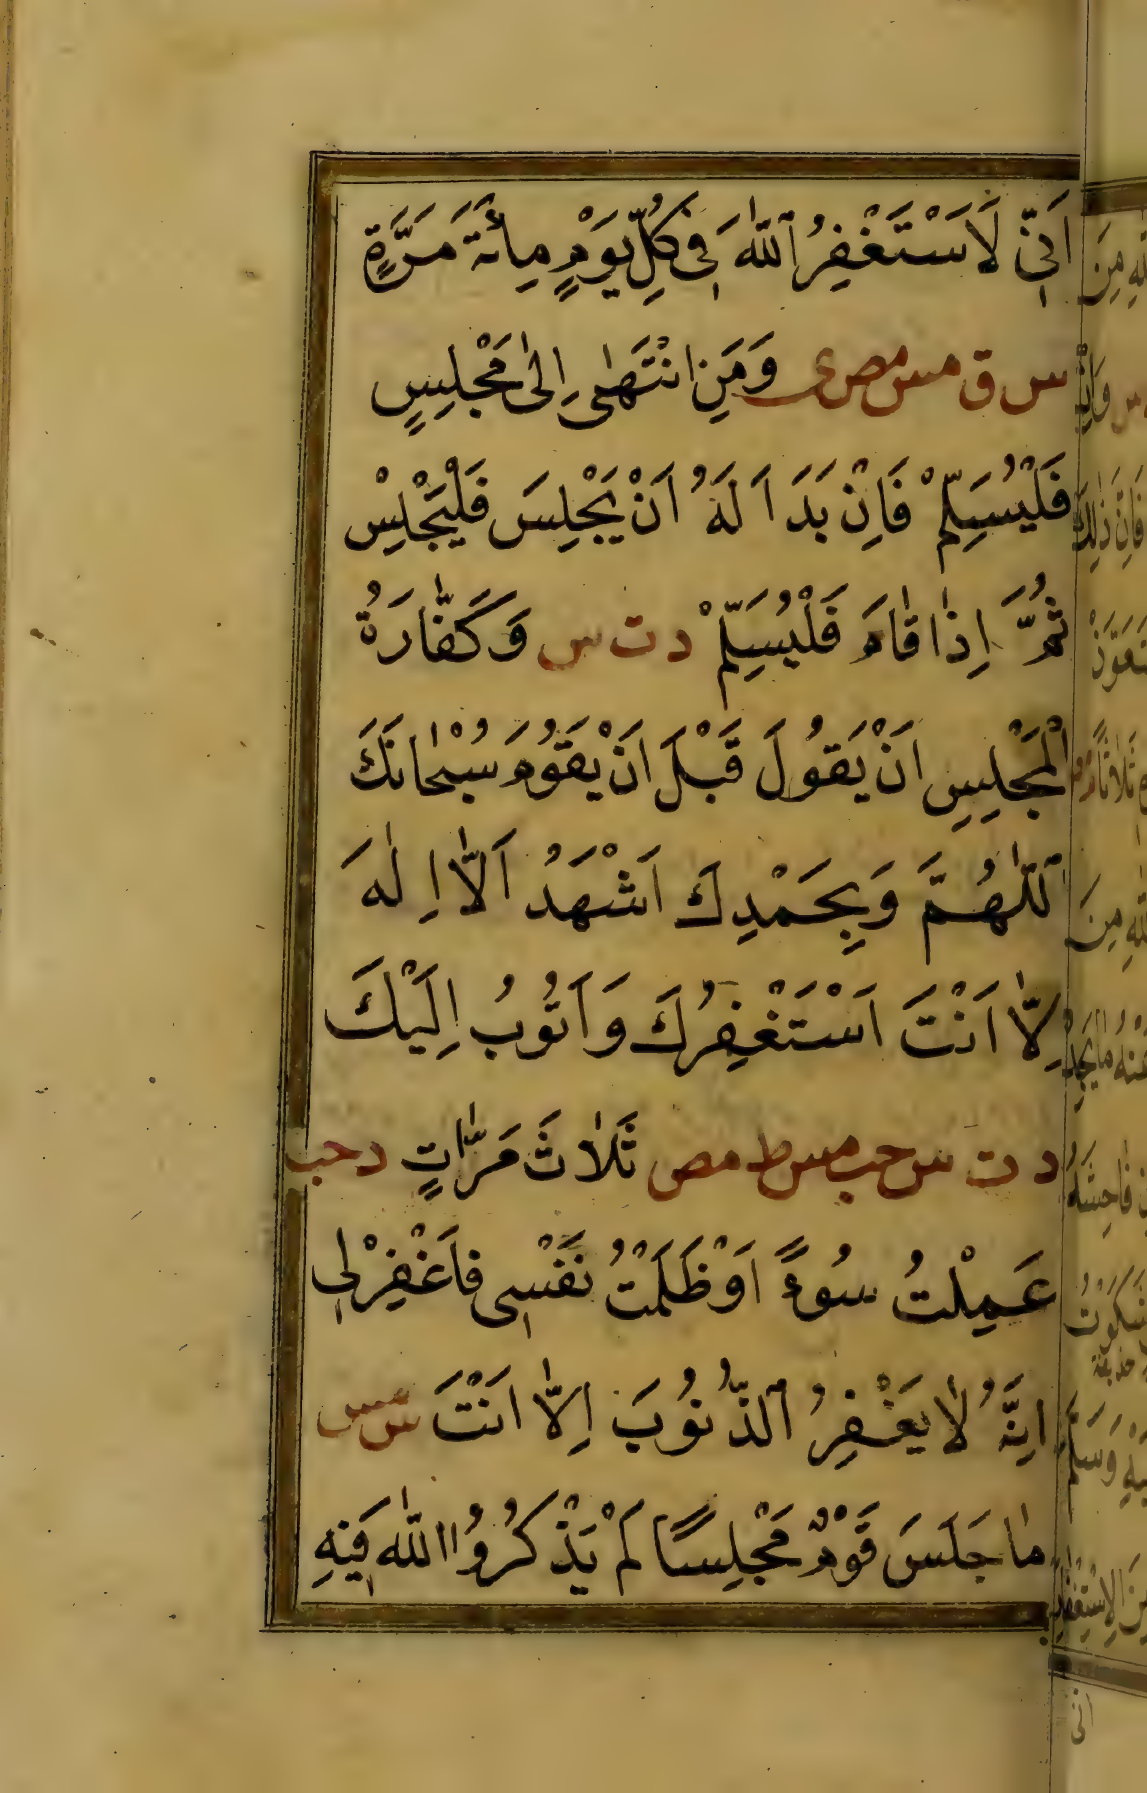 اَنِّي لَاَسْتَغْفِرُ اللّٰهَ فِي كُلِّ يَوْمٍ مِائَةَ مَرَّةٍ
س ق مس مص ى وَمَنِ انْتَهٰى اِلٰى مَجْلِسٍ
فَلْيُسَلِّمْ فَاِنْ بَدَا لَهُ اَنْ يَجْلِسَ فَلْيَجْلِسْ
ثُمَّ اِذَا قَامَ فَلْيُسَلِّمْ د ت س وَكَفَّارَةُ
الْمَجْلِسِ اَنْ يَقُولَ قَبْلَ اَنْ يَقُومَ سُبْحَانَكَ
اللّٰهُمَّ وَبِحَمْدِكَ اَشْهَدُ اَلَّا اِلٰهَ
اِلَّا اَنْتَ اَسْتَغْفِرُكَ وَاَتُوبُ اِلَيْكَ
د ت س حب مس ط مص ثَلَاثَ مَرَّاتٍ د حب
عَمِلْتُ سُوءً اَوْ ظَلَمْتُ نَفْسِي فَاغْفِرْ لِي
اِنَّهُ لَا يَغْفِرُ الذُّنُوبَ اِلَّا اَنْتَ س مس
مَا جَلَسَ قَوْمٌ مَجْلِسًا لَمْ يَذْكُرُوا اللّٰهَ فِيهِ